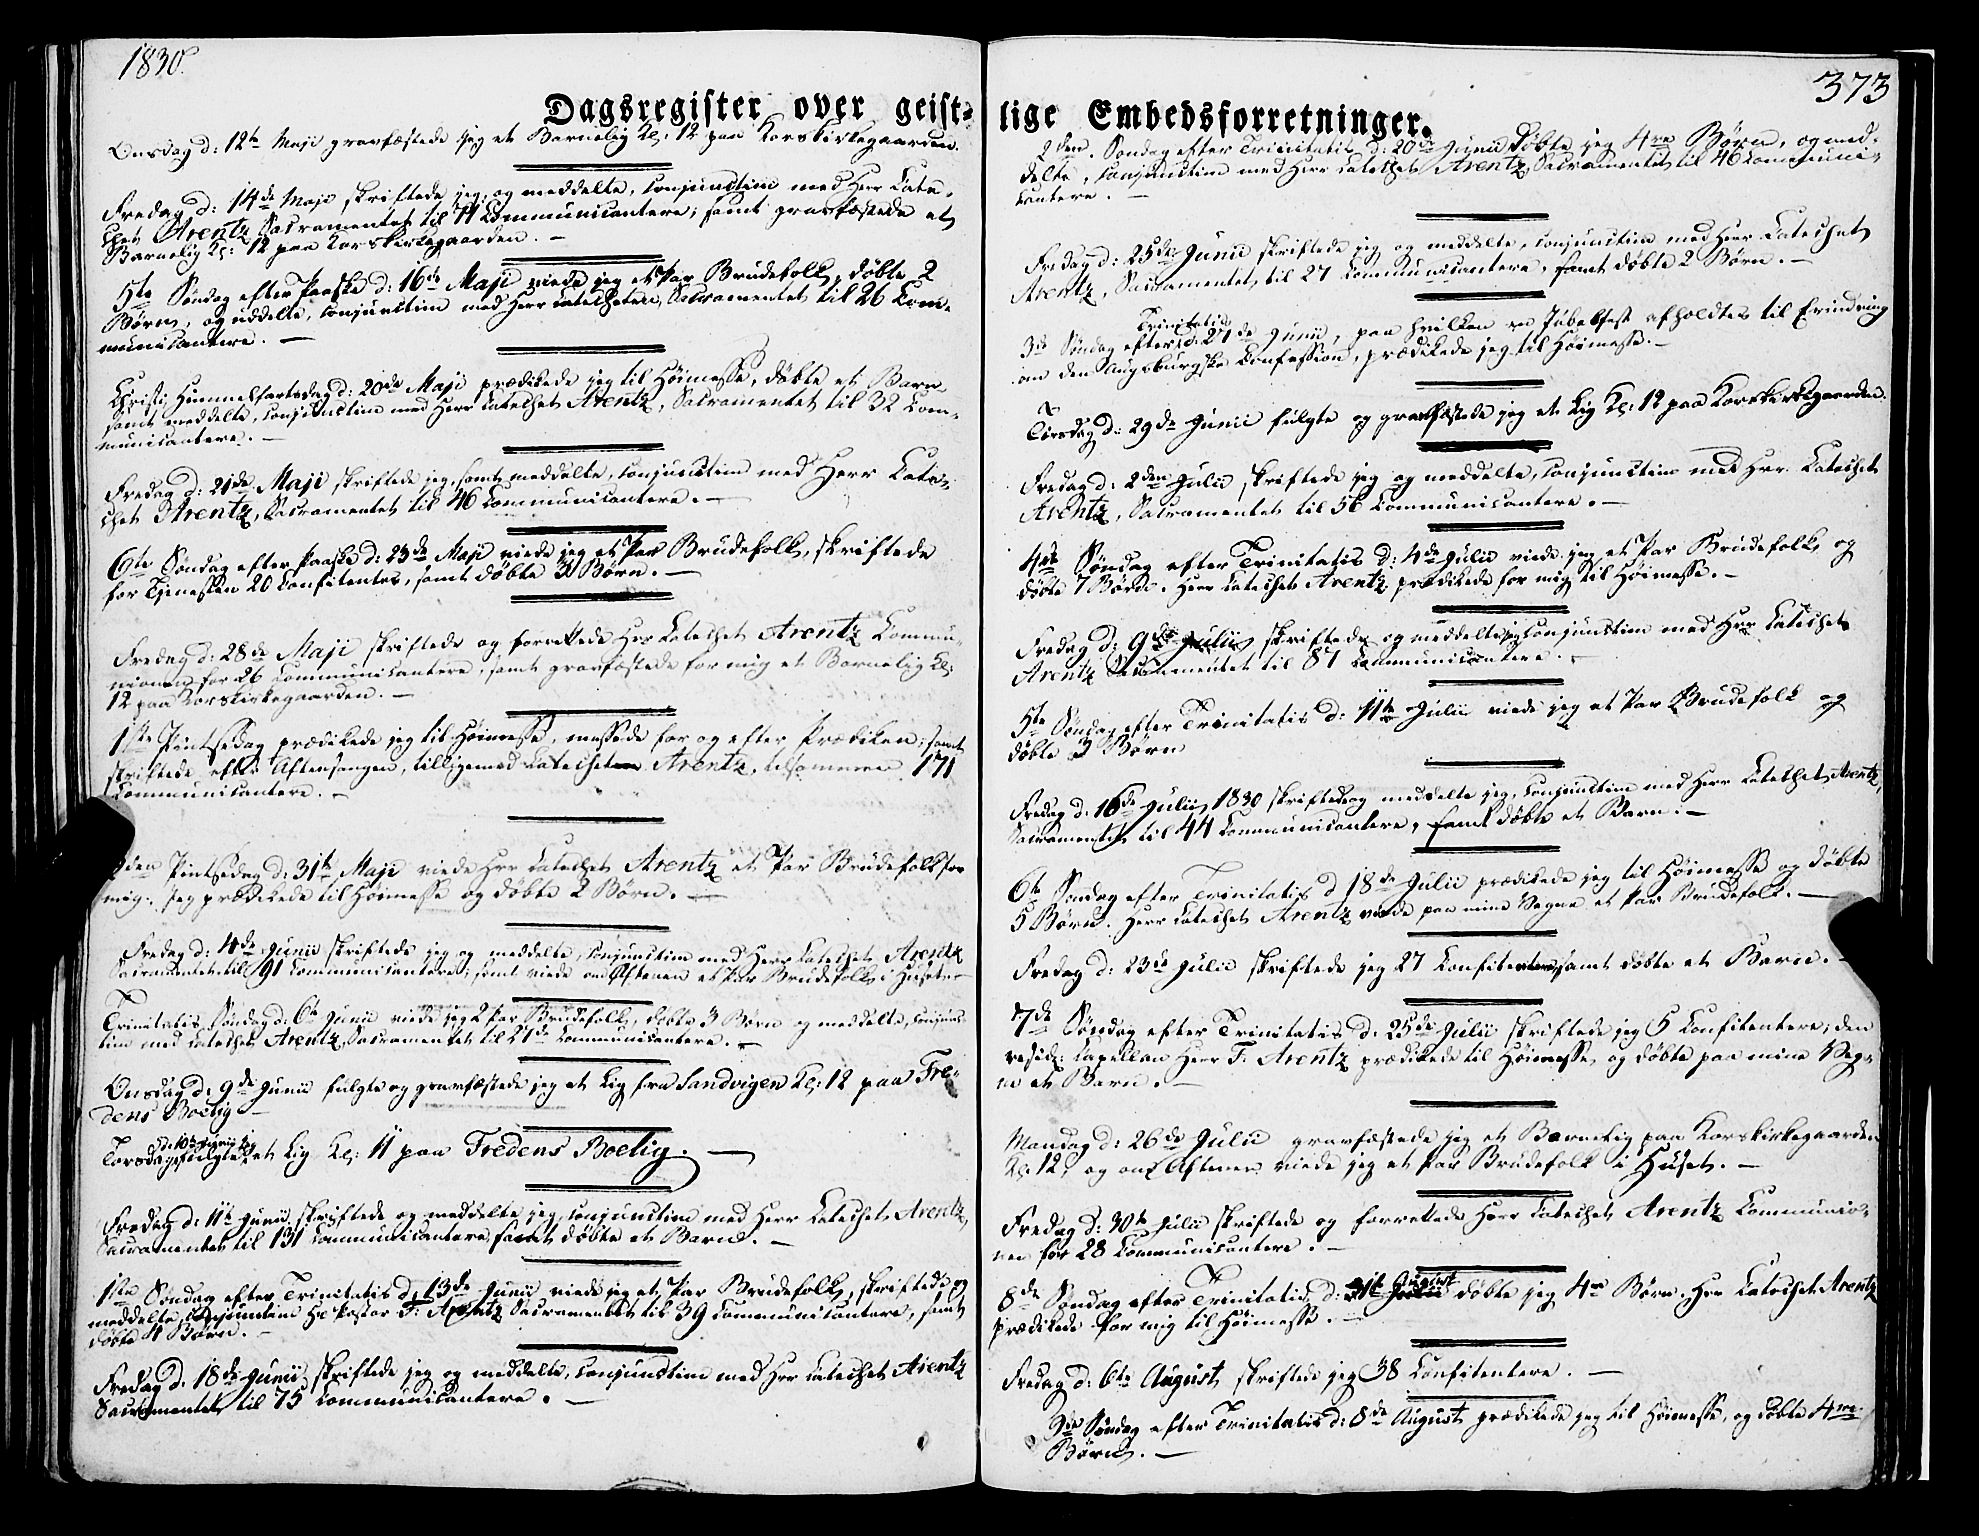 1830.
Dagsregister over geist-
Onsdag d: 12te Maji gravfæstede jeg et Barnelig Kl: 12 paa Korskirkegaarden.
Fredag d: 14de Maji skriftede jeg og meddelte, conjunctim med Herr Cate-
chet Arentz Sacramentet til 11 Communicantere; samt gravfæstede et
Barnelig Kl: 12 paa Korskirkegaarden. —
5te Søndag efter Paaske d: 16de Maji viede jeg et Par Brudefolk, døbte 2
Børn, og uddelte, conjunctim med Herr Catecheten Sacramentet til 26 Com-
municantere. —
Christi Himmelfartsdag d: 20de Maji prædikede jeg til Høimesse, døbte et Barn
samt meddelte, conjunctim med Herr Catechet Arentz, Sacramentet til 32 Com-
municantere. —
Fredag d: 21de Maji skriftede jeg, samt meddelte, conjunctim med Herr Cate-
chet Arentz, Sacramentet til 46 Communicantere. —
6te Søndag efter Paaske d: 23de Maji viede jeg et Par Brudefolk, skriftede
før Tjenesten 20 Confitentes, samt døbte 3 Børn. —
Fredag d: 28de Maji skriftede og forrettede Hrr Catechet Arentz Commu-
nionen for 26 Communicantere, samt gravfæstede for mig et Barnelig Kl:
12 paa Korskirkegaarden. —
1ste Pintsedag prædikede jeg til Høimesse, messede før og efter Prædiken; samt
skriftede efter Aftensangen, tilligemed Catecheten Arentz, tilsammen 171
Communicantere. —
2den Pintsedag d: 31te Maji viede Hrr Catechet Arentz et Par Brudefolk for
mig. Jeg prædikede til Høimesse og døbte 2 Børn. —
Fredag d: 4de Junii skriftede jeg og meddelte, conjunctim med Herr Catechet Arentz
Sacramentet til 91 Communicantere; samt viede om Aftenen et Par Brudefolk i Huset. —
Trinitatis Søndag d: 6te Junii viede jeg 2 Par Brudefolk, døbte 3 Børn og meddelte, conjunc-
tim med Catechet Arentz Sacramentet til 27de Communicantere. —
Onsdag d: 9de Junii fulgte og gravfæstede jeg et Lig fra Sandvigen Kl: 12 paa Fre-
dens Boelig —
d: 10de Junii jeg
Torsdag fulgte et Lig Kl: 11 paa Fredens Boelig. —
Fredag d: 11te Junii skriftede og meddelte jeg, conjunctim med Herr Catechet Arentz,
Sacramentet til 131 Communicantere, samt døbte et Barn. —
1ste Søndag efter Trinitatis d: 13de Junii viede jeg et Par Brudefolk, skriftede og
meddelte, conjunctim Hr Pastor F: Arentz Sacramentet til 39 Communicantere, samt
døbte 4 Børn. —
Fredag d: 18de Junii skriftede jeg og meddelte, conjunctim med Hrr Catechet Arentz
Sacramentet til 75 Communicantere. —
373
lige Embedsforretninger.
2den Søndag efter Trinitatis d: 20de Junii døbte jeg 4re Børn, og med-
delte, conjunctim med Herr Catechet Arentz, Sacramentet til 46 Communi-
cantere. —
Fredag d: 25de Junii skriftede jeg og meddelte, conjunctim med Herr Catechet
Arentz, Sacramentet til 27 Communicantere, samt døbte 2 Børn. —
Trinitatis
3die Søndag efter d: 27de Junii, paa hvilken en Jubelfest afholdtes til Erindring
om den Augsburgske Confession, prædikede jeg til Høimesse. —
Tirsdag d: 29de Junii fulgte og gravfæstede jeg et Lig Kl: 12 paa Korskirkegaarden.
Fredag d: 2den Julii skriftede jeg og meddelte, conjunctim med Hrr Catechet
Arentz, Sacramentet til 56 Communicantere. —
4de Søndag efter Trinitatis d: 4de Julii viede jeg et Par Brudefolk og
døbte 7 Børn. Herr Catechet Arentz prædikede for mig til Høimesse. —
Fredag d: 9de Julii skriftede og meddelte jeg conjunctim med Hrr Catechet
Arentz Sacramentet til 87 Communicantere. —
5te Søndag efter Trinitatis d: 11te Julii viede jeg et Par Brudefolk og
døbte 3 Børn
Fredag d: 16de Julii 1830 skriftede og meddelte jeg, conjunctim med Herr Catechet Arentz,
Sacramentet til 44 Communicantere, samt døbte et Barn. —
6te Søndag efter Trinitatis d 18de Julii prædikede jeg til Høimesse og døbte
5 Børn. Herr Catechet Arentz viede paa mine Vegne et Par Brudefolk. —
Fredag d: 23de Julii skriftede jeg 27 Confitentere, samt døbte et Barn. —
7de Søndag efter Trinitatis d: 25de Julii skriftede jeg 5 Confitentere; den
resid: Capellan Herr F: Arentz prædikede til Høimesse, og døbte paa mine Veg-
ne et Barn. —
Mandag d: 26de Julii gravfæstede jeg et Barnelig paa Korskirkegaarden
Kl: 12, og om Aftenen viede jeg et Par Brudefolk i Huset. —
Fredag d: 30te Julii skriftede og forrettede Herr Catechet Arentz Communio-
nen for 28 Communicantere. —
August
8de Søndag efter Trinitatis d: 1te døbte jeg 4re Børn. Hrr Catechet Arentz
prædikede for mig til Høimesse. —
Fredag d: 6te August skriftede jeg 38 Confitentere. —
9de Søndag efter Trinitatis d: 8de August prædikede jeg til Høimesse, og døbte 4re
Børn. —